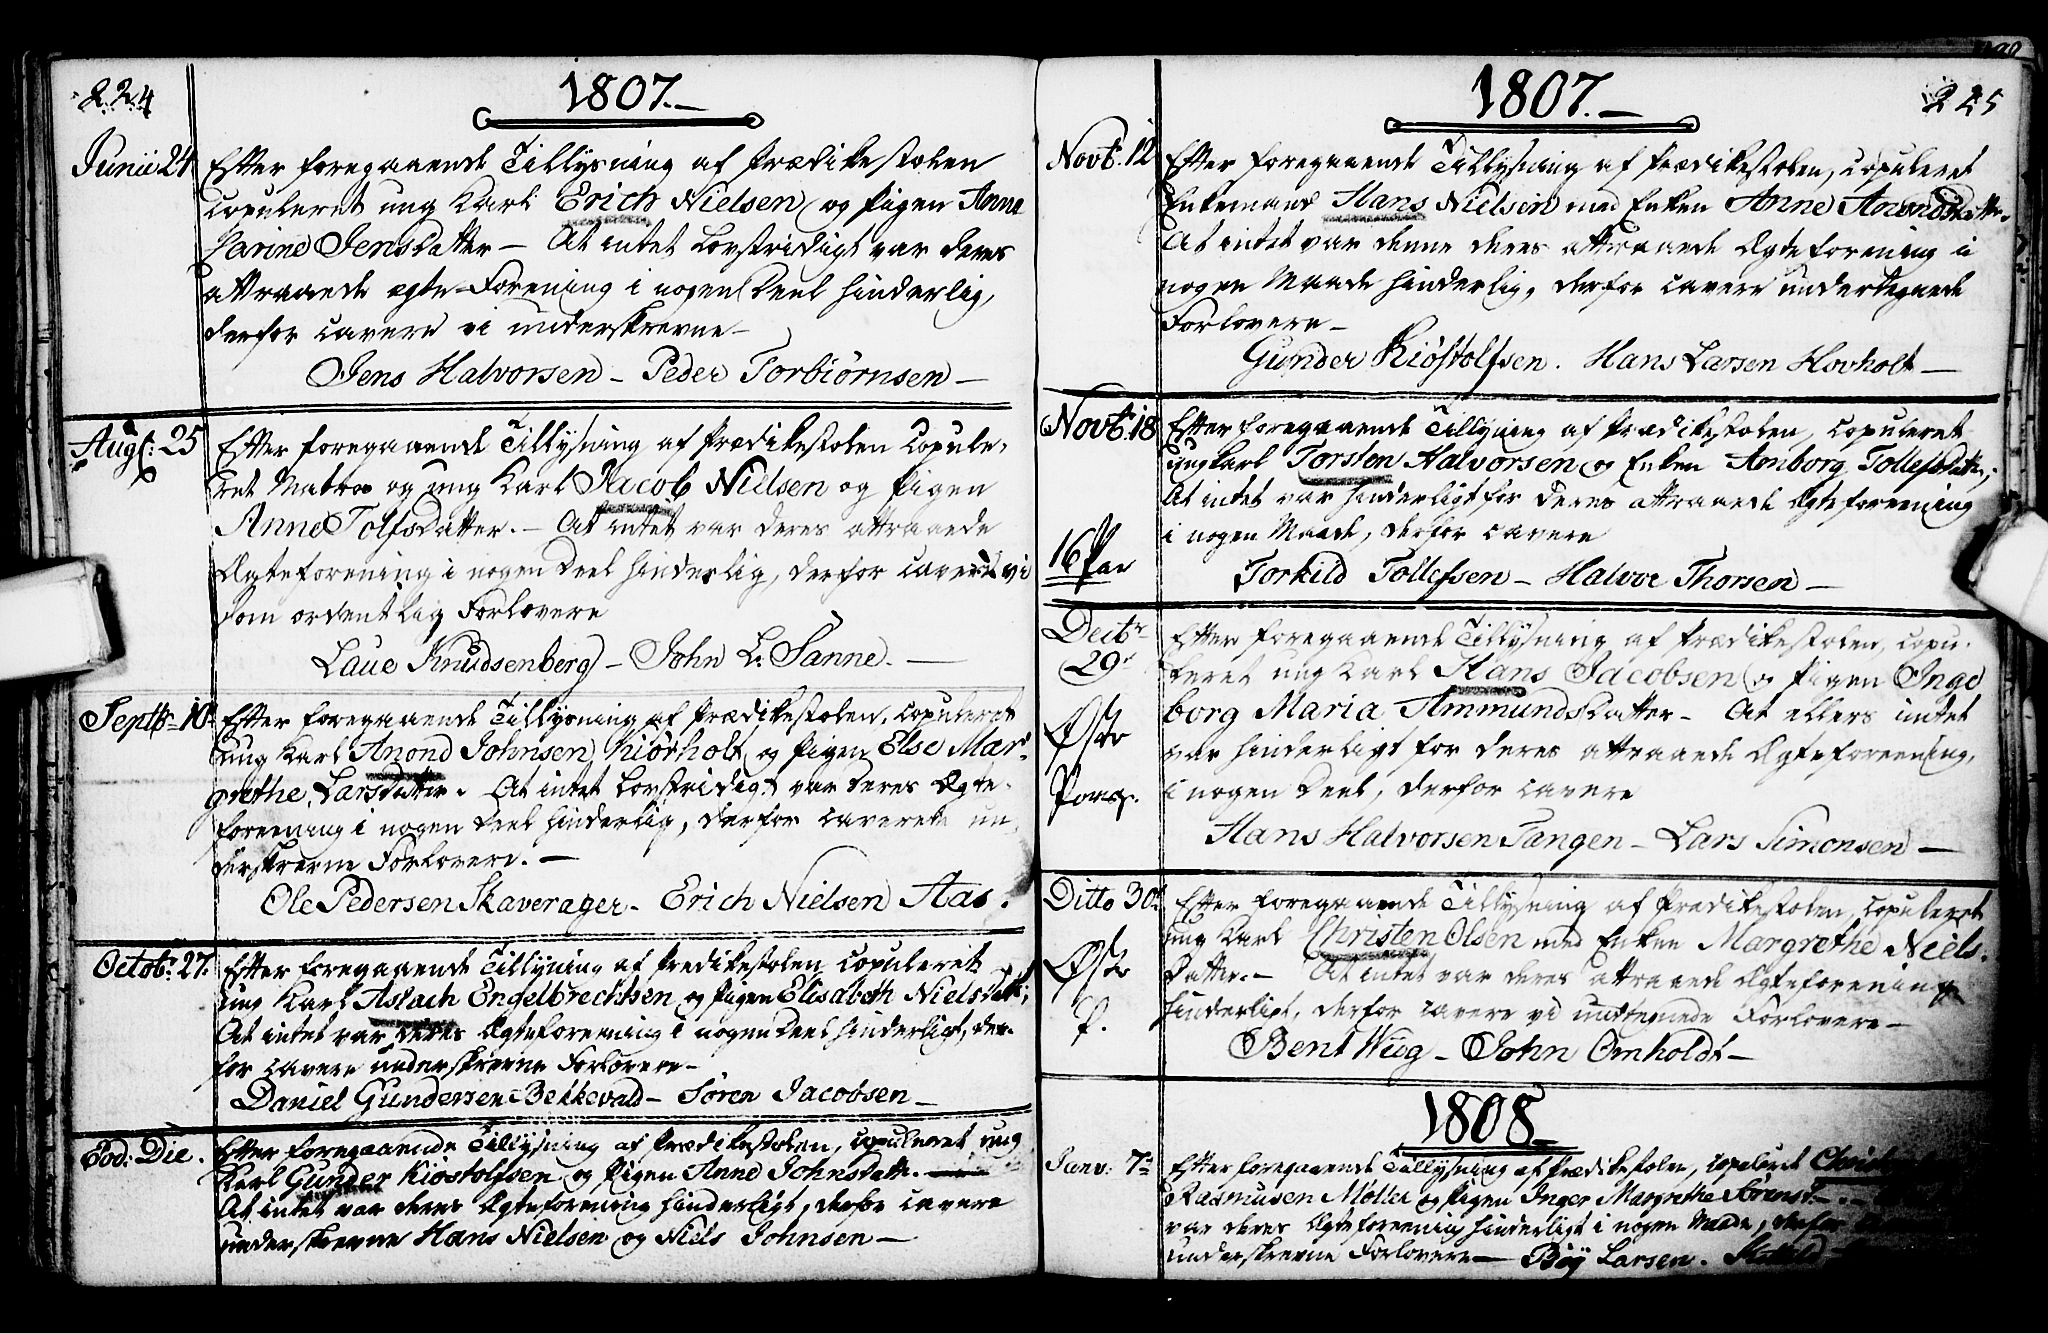 224
1807.
Junii 24
Efter foregaaende Tillysning af Prædikestolen
copuleret ung Karl Erich Nielsen og Pigen Anne
Karine Jensdatter - At intet lovstridigt var deres
attraaede ægte-Forening i nogen Deel hinderlig,
derfor cavere vi underskrevne -
Jens Halvorsen - Peder Torbiörnsen -
Augs: 25
Efter foregaaende Tillysning af Prædikestolen Copule-
ret og ung Karl Jacob Nielsen og Pigen
Anne Tolfsdatter. - At intet var deres attraaede
Ægteforening i nogen Deel hinderlig, derfor cavere vi
som ordentlig Forlovere
Laue Knudsenberg - John L. Sanne. -
Septbr 10
Efter foregaaende Tillysning af Prædikestolen, copuleret
ung Karl Anond Johnsen Kiörholt og Pigen Else Mar-
grethe Larsdatter. At intet lovstridigt var deres Ægte-
foreening i nogen Deel hinderlig, derfor caverede un
derskrevne Forlovere. -
Ole Pedersen Skaverager - Erich Nielsen Aas.
Octobr. 27.
Efter foregaaende Tillysning af Prædikestolen copuleret
ung Karl Aslach Engelbrechtsen og Pigen Elisabeth Nielsdatt;
At intet var deres Ægteforeening i nogen Deel hinderligt, der-
for cavere underskrevne Forlovere -
Daniel Gundersen Bekkevald - Sören Jacobsen -
Eod: Die.
Efter foregaaende Tillysning af Prædikestolen, copuleret ung
Karl Gunder Kiöstolfsen og Pigen Anne Johnsdatt. -
At intet var deres Ægteforening hinderligt, derfor cavere
underskrevne Hans Nielsen og Niels Johnsen -
1807.
225
Novb. 12
Efter foregaaende Tillysning af Prædikestolen, copuleret
Enkemand Hans Nielsen med Enken Anne Anondsdattr.
At intet var denne deres attraaede Ægteforening i
nogen Maade hinderlig, derfor cavere undertegnede
Forlovere -
Gunder Kiöstolfsen. Hans Larsen Hovholt -
Novb. 18
Efter foregaaende Tillysning af Prædikestolen, copuleret
ungkarl Torsten Halvorsen og Enken Amborg Tollefsdatt.;
At intet var hinderligt for deres attraaede Ægteforeening
i nogen Maade, derfor cavere
16 Par
Torkild Tollefsen - Halvor Thorsen -
Decbr
29
Østr
Porsg.
Efter foregaaende Tillysning af Prædikestolen, copu-
leret ung Karl Hans Jacobsen og Pigen Inge
borg Maria Ammundsdatter - At ellers intet
var hinderligt for deres attraaede Ægteforeening,
i nogen Deel, derfor cavere
Hans Halvorsen Tangen - Lars Simonsen -
Ditto 30
Østr
P.
Efter foregaaende Tillysning af Prædikestolen, copuleret
ung Karl Christen Olsen med Enken Margrethe Niels-
datter. - At intet var deres attraaede Ægteforening
hinderligt, derfor cavere vi undtegnede Forlovere -
Bent Wiig - John Omholdt -
1808
Janv: 7
Efter foregaaende Tillysning af Prædikestolen, copuleret
Rasmusen Möller og Pigen Inger Margrethe Sörensd. -
var deres Ægteforeening hinderligt i nogen Maade, derfor
underskrevne Forlovere - Böy Larsen.